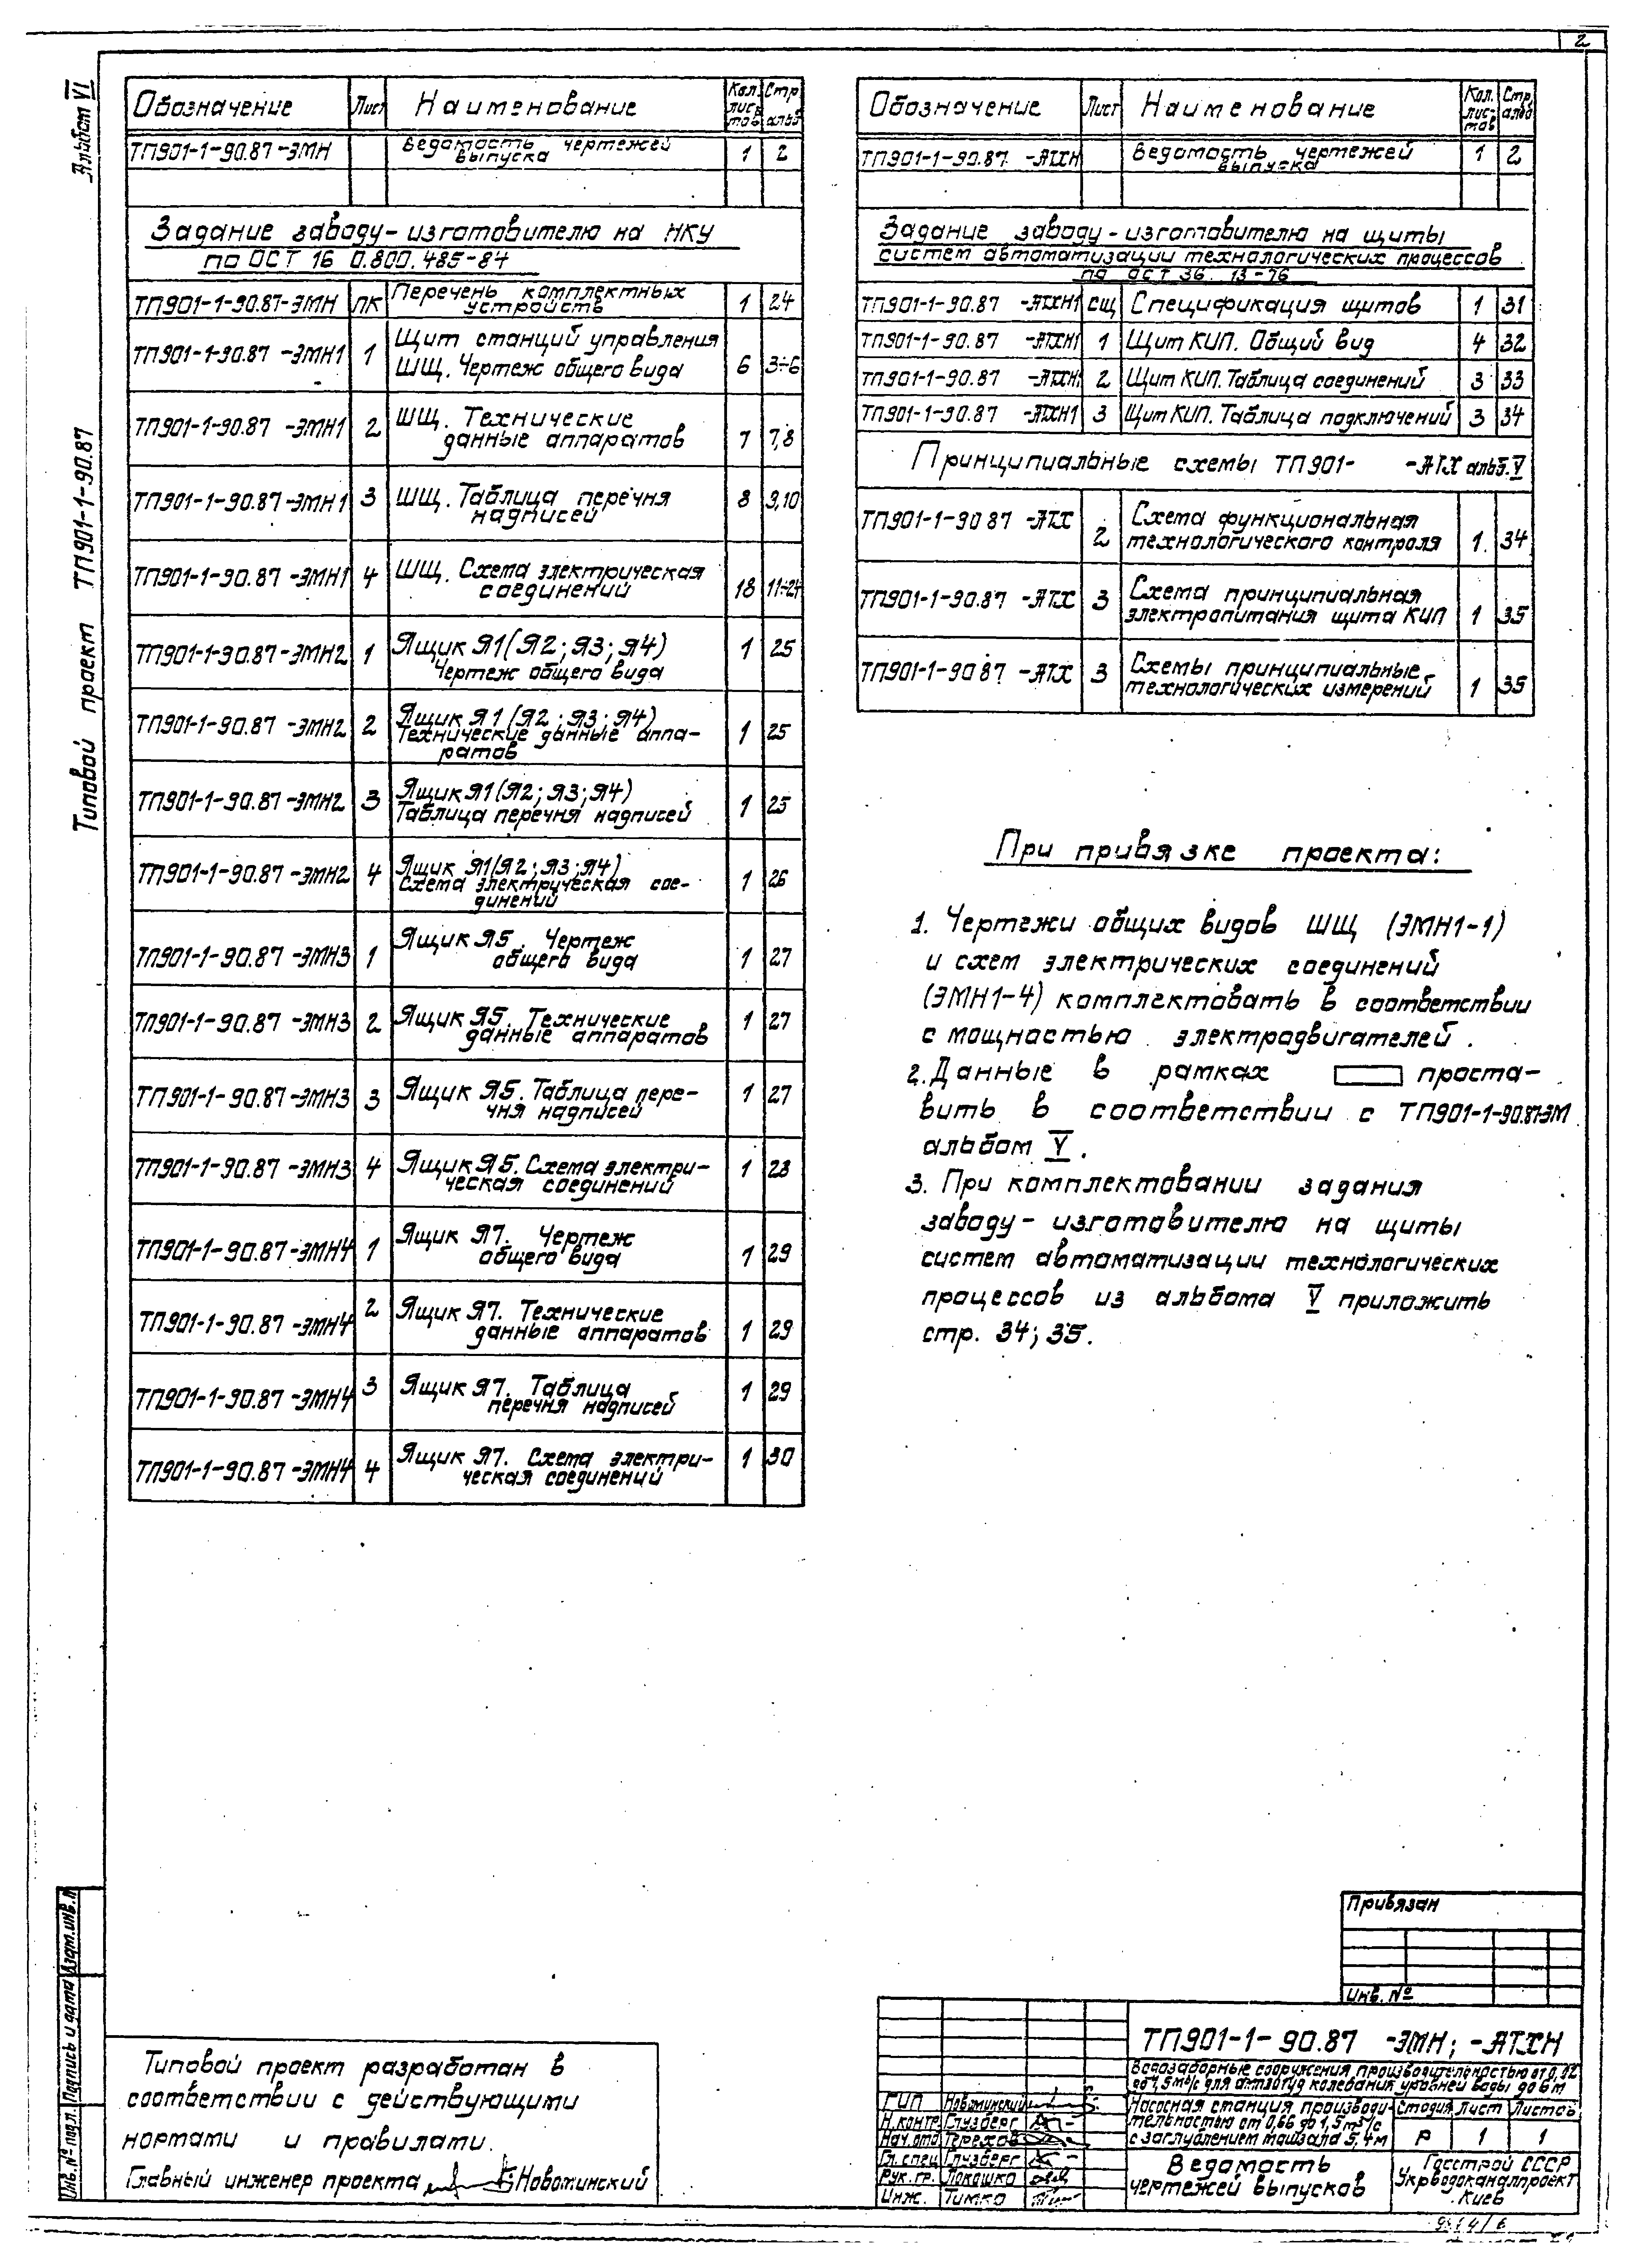 2
Альбом VI
Типовой проект ТП901-1-90.87
Обозначение Лист Наименование Кол. листов Стр. альб.
ТП901-1-90.87-ЭМН Ведомость чертежей выпуска 1 2
Задание заводу-изготовителю на НКУ
по ОСТ 16 0.800.485-84
ТП901-1-90.87-ЭМН ПК Перечень комплектных устройств 1 24
ТП901-1-90.87-ЭМН1 1 Щит станций управления ШЩ. Чертеж общего вида 6 3÷6
ТП901-1-90.87-ЭМН1 2 ШЩ. Технические данные аппаратов 7 7,8
ТП901-1-90.87-ЭМН1 3 ШЩ. Таблица перечня надписей 8 9,10
ТП901-1-90.87-ЭМН1 4 ШЩ. Схема электрическая соединений 18 11÷24
ТП901-1-90.87-ЭМН2 1 Ящик Я1(Я2; Я3; Я4) Чертеж общего вида 1 25
ТП901-1-90.87-ЭМН2 2 Ящик Я1(Я2; Я3; Я4) Технические данные аппа-ратов 1 25
ТП901-1-90.87-ЭМН2 3 Ящик Я1(Я2; Я3; Я4) Таблица перечня надписей 1 25
ТП901-1-90.87-ЭМН2 4 Ящик Я1(Я2; Я3; Я4) Схема электрическая сое-динений 1 26
ТП901-1-90.87-ЭМН3 1 Ящик Я5. Чертеж общего вида 1 27
ТП901-1-90.87-ЭМН3 2 Ящик Я5. Технические данные аппаратов 1 27
ТП901-1-90.87-ЭМН3 3 Ящик Я5. Таблица пере-чня надписей 1 27
ТП901-1-90.87-ЭМН3 4 Ящик Я5. Схема электри-ческая соединений 1 28
ТП901-1-90.87-ЭМН4 1 Ящик Я7. Чертеж общего вида 1 29
ТП901-1-90.87-ЭМН4 2 Ящик Я7. Технические данные аппаратов 1 29
ТП901-1-90.87-ЭМН4 3 Ящик Я7. Таблица перечня надписей 1 29
ТП901-1-90.87-ЭМН4 4 Ящик Я7. Схема электри-ческая соединений 1 30
Обозначение Лист Наименование Кол. лис-тов Стр. альб
ТП901-1-90.87 -АТХН Ведомость чертежей выпуска 1 2
Задание заводу-изготовителю на щиты
систем автоматизации технологических процессов
по ОСТ 36. 13-76
ТП901-1-90.87 -АТХН1 СЩ Спецификация щитов 1 31
ТП901-1-90.87 -АТХН1 1 Щит КИП. Общий вид 4 32
ТП901-1-90.87 -АТХН1 2 Щит КИП. Таблица соединений 3 33
ТП901-1-90.87 -АТХН1 3 Щит КИП. Таблица подключений 3 34
Принципиальные схемы ТП901- -АТХ альб. V
ТП901-1-90.87 -АТХ 2 Схема функциональная технологического контроля 1 34
ТП901-1-90.87 -АТХ 3 Схема принципиальная электропитания щита КИП 1 35
ТП901-1-90.87 -АТХ 3 Схемы принципиальные технологических измерений 1 35
При привязке проекта:
1. Чертежи общих видов ШЩ (ЭМН1-1)
и схем электрических соединений
(ЭМН1-4) комплектовать в соответствии
с мощностью электродвигателей.
2. Данные в рамках проста-
вить в соответствии с ТП901-1-90.87-ЭМ
альбом V.
3. При комплектовании задания
заводу-изготовителю на щиты
систем автоматизации технологических
процессов из альбома V приложить
стр. 34; 35.
Типовой проект разработан в
соответствии с действующими
нормами и правилами.
Главный инженер проекта Новоминский
Инв. № подл. Подпись и дата Взам. инв. №
Привязан
Инв. №
ТП901-1-90.87 -ЭМН; -АТХН
Водозаборные сооружения производительностью от 0,02
до 1,5 м³/с для амплитуд колебания уровней воды до 6 м
ГИП Новоминский
Н.контр. Глузберг
Нач.отд Терехов
Гл.спец Глузберг
Рук.гр. Локошко
Инж. Тимко
Насосная станция производи-
тельностью от 0,66 до 1,5 м³/с
с заглублением машзала 5,4 м
Стадия Лист Листов
Р 1 1
Ведомость
чертежей выпусков
Госстрой СССР
Укрводоканалпроект
Киев